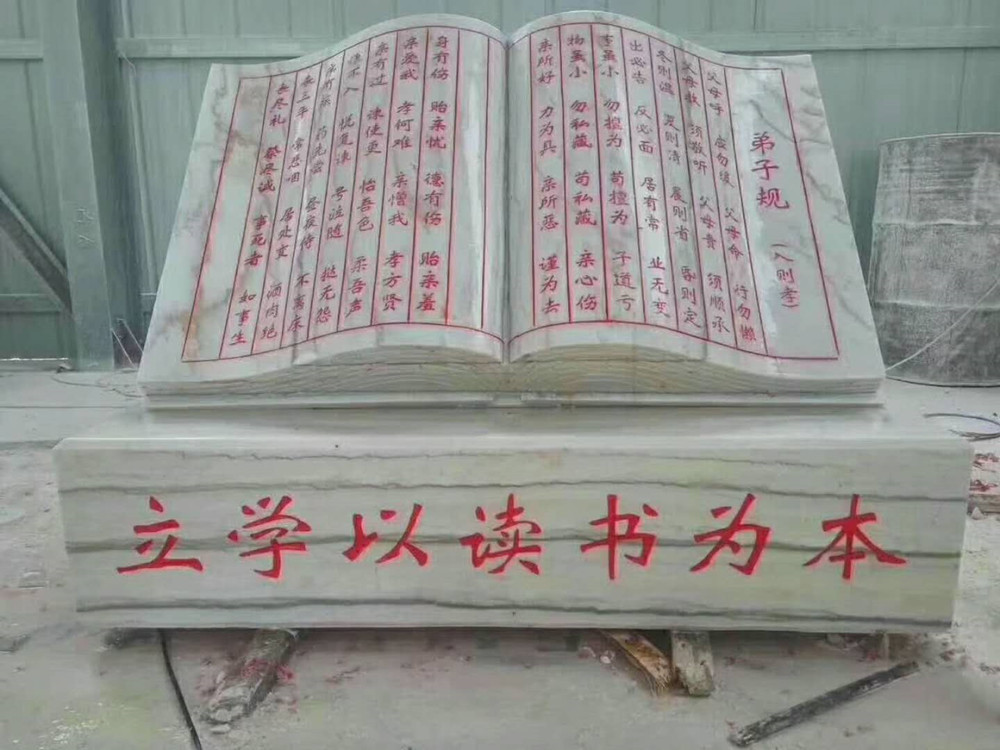 弟子规（入则孝）
父母呼 应勿缓 父母命 行勿懒
父母教 须敬听 父母责 须顺承
冬则温 夏则清 晨则省 昏则定
出必告 反必面 居有常 业无变
事虽小 勿擅为 苟擅为 子道亏
物虽小 勿私藏 苟私藏 亲心伤
亲所好 力为具 亲所恶 谨为去
身有伤 贻亲忧 德有伤 贻亲羞
亲爱我 孝何难 亲憎我 孝方贤
亲有过 谏使更 怡吾色 柔吾声
谏不入 悦复谏 号泣随 挞无怨
亲有疾 药先尝 昼夜侍 不离床
丧三年 常悲咽 居处变 酒肉绝
丧尽礼 祭尽诚 事死者 如事生
立学以读书为本